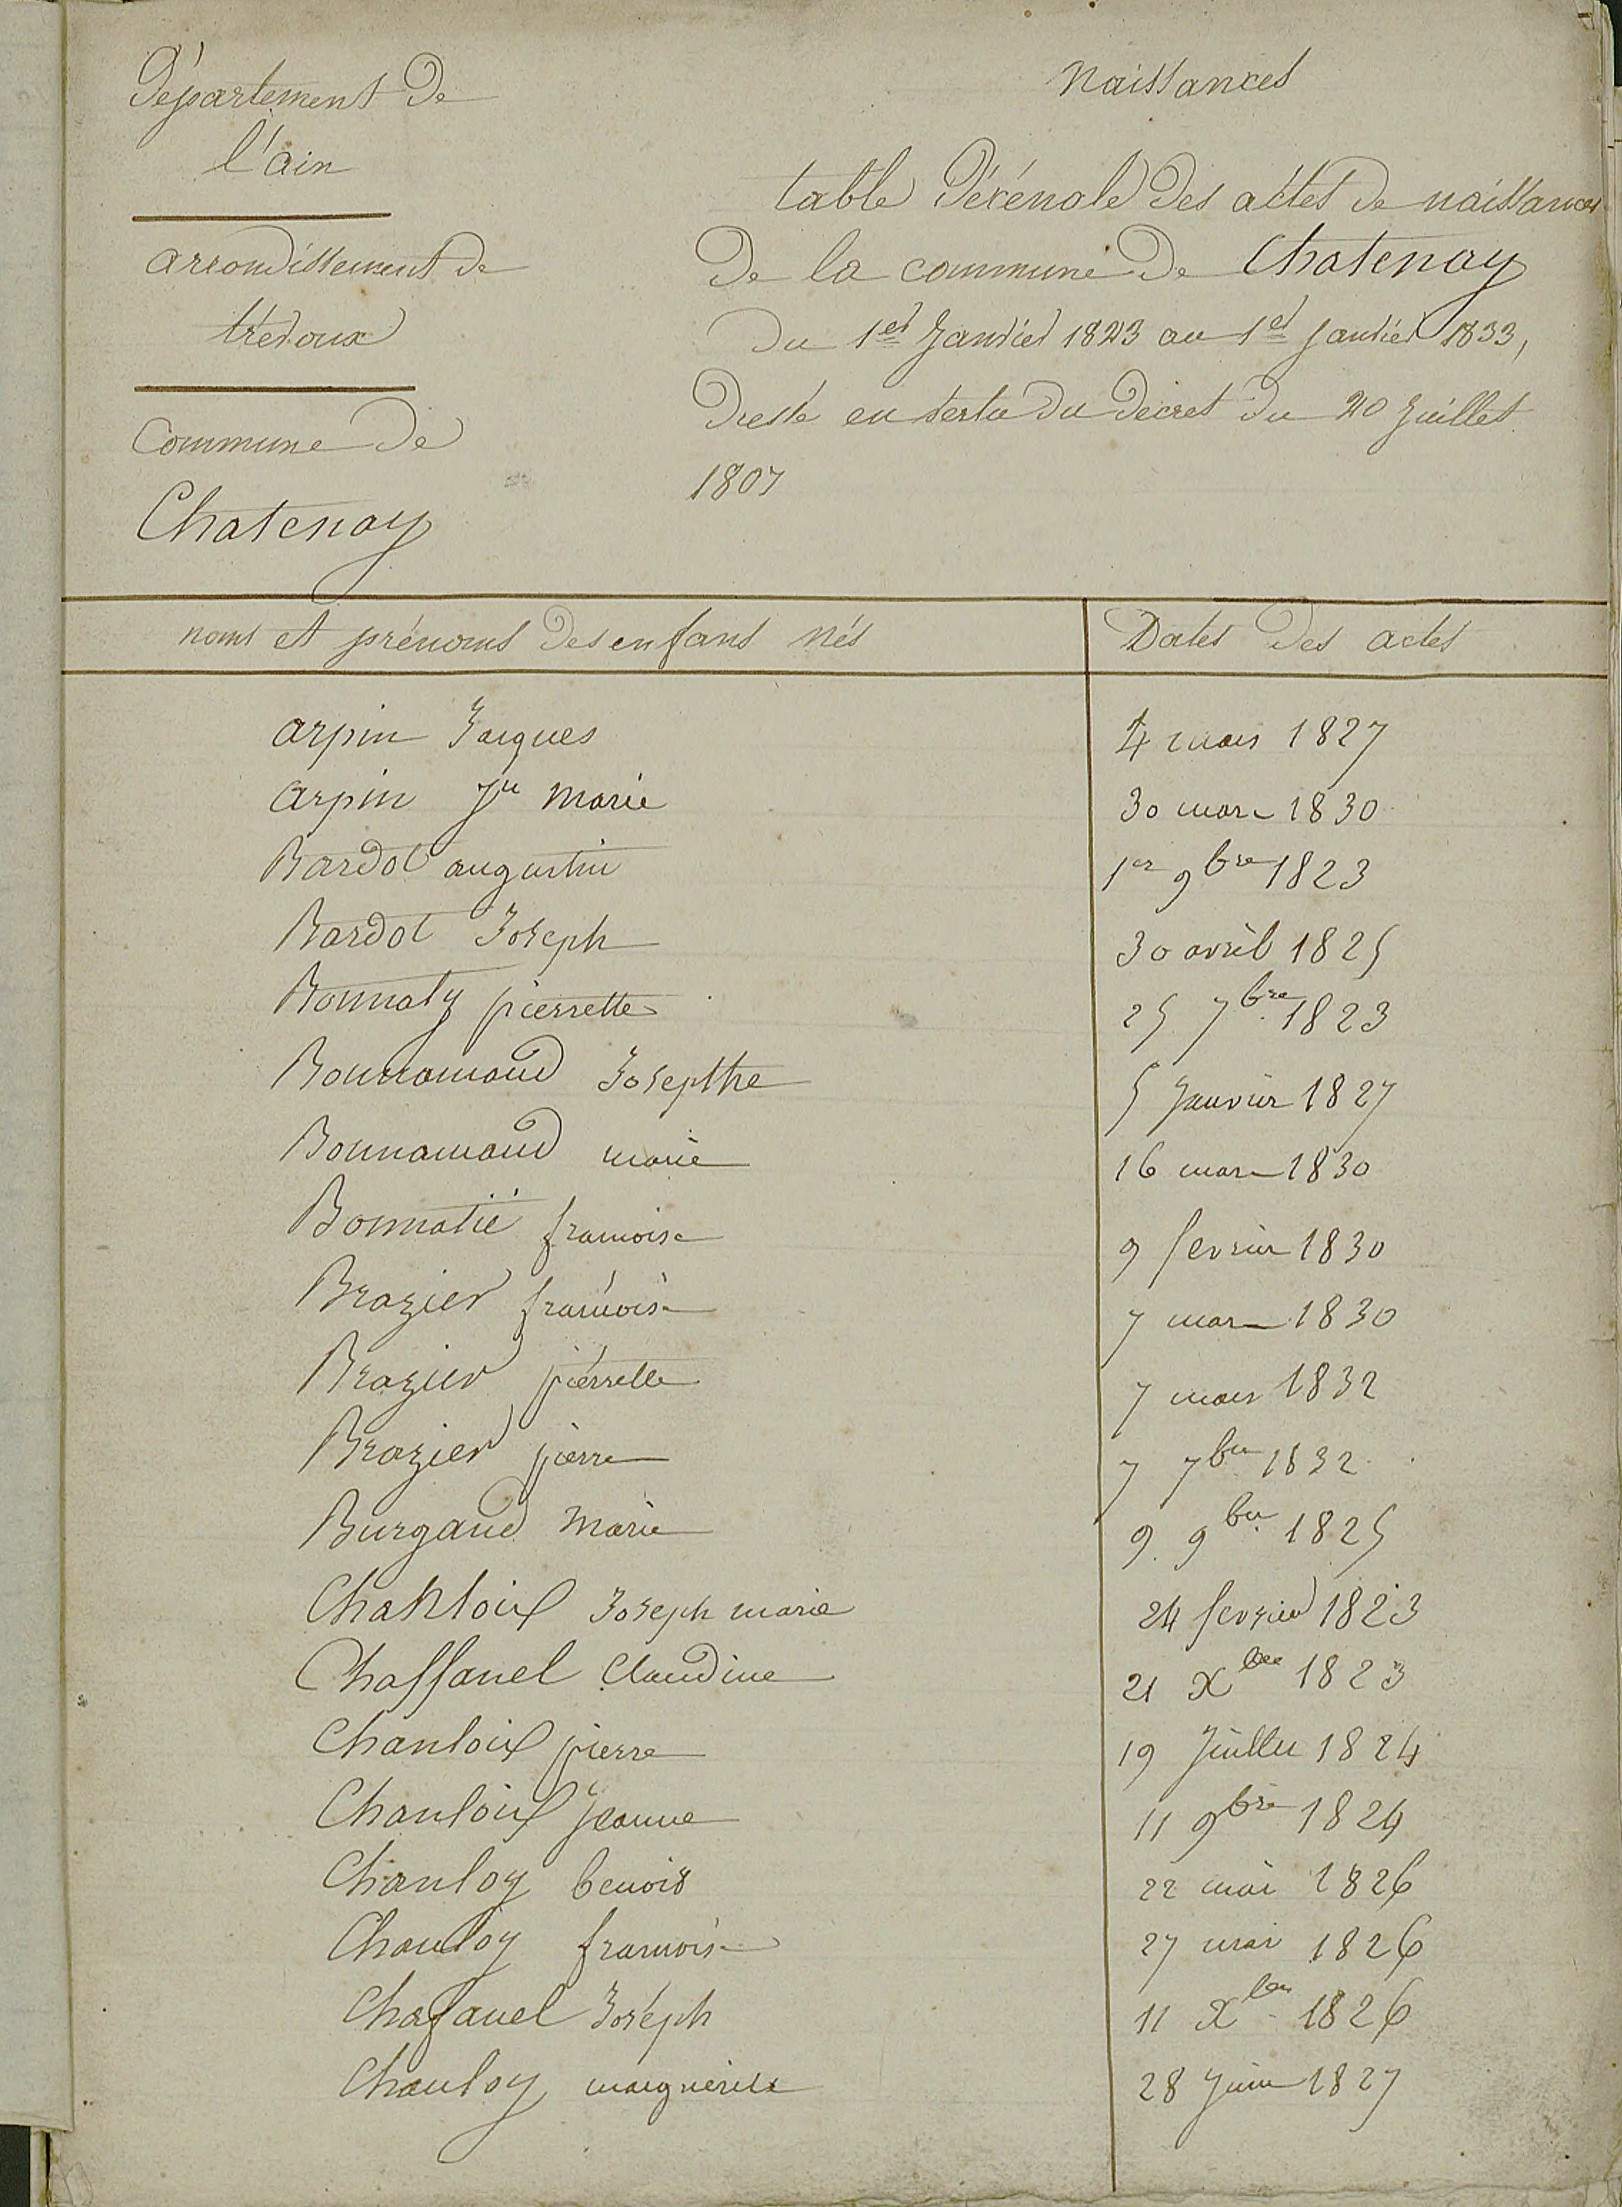 Département De
l'ain
arrondissement de
trévoux
Commune De
Chatenay
Naissances
table Décénale Des actes de naissances
De la commune De Chatenay
Du 1er Janvier 1823 au 1er Janvier 1833,
Dressé en vertu du décret du 20 Juillet
1807
noms et prénoms des enfans nés Dates des actes
arpin Jacques 4 mars 1827
arpin Jh marie 30 mars 1830
Bardot augustin 1er 9bre 1823
Bardot Joseph 30 avril 1825
Bonnaty pierrette 25 7bre 1823
Bonnamoud Josepthe 5 Janvier 1827
Bonnamoud marie 16 mars 1830
Bonnatié francoise 9 fevrier 1830
Brazier francoise 7 mars 1830
Brazier pierrette 7 mars 1832
Brazier pierre 7 7bre 1832
Burgaud Marie 9 9bre 1825
Joseph marie 24 fevrier 1823
Chaffanel Claudine 21 Xbre 1823
Chanloix pierre 19 Juillet 1824
Chanloix Jeanne 11 9bre 1824
Chanloy benoit 22 mai 1826
Chanloy francois 27 mai 1826
Chafanel Joseph 11 Xbre 1826
Chanloy marguerite 28 Juin 1827